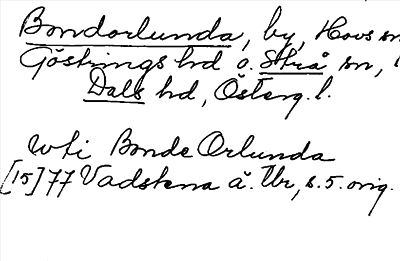 Bondorlunda, by, Hovs sn
Göstrings hd o. Strå sn,
Dals hd, Österg. l.
wti Bonde Orlunda
[15]77 Vadstena ä. Ubr, s. 5. orig.